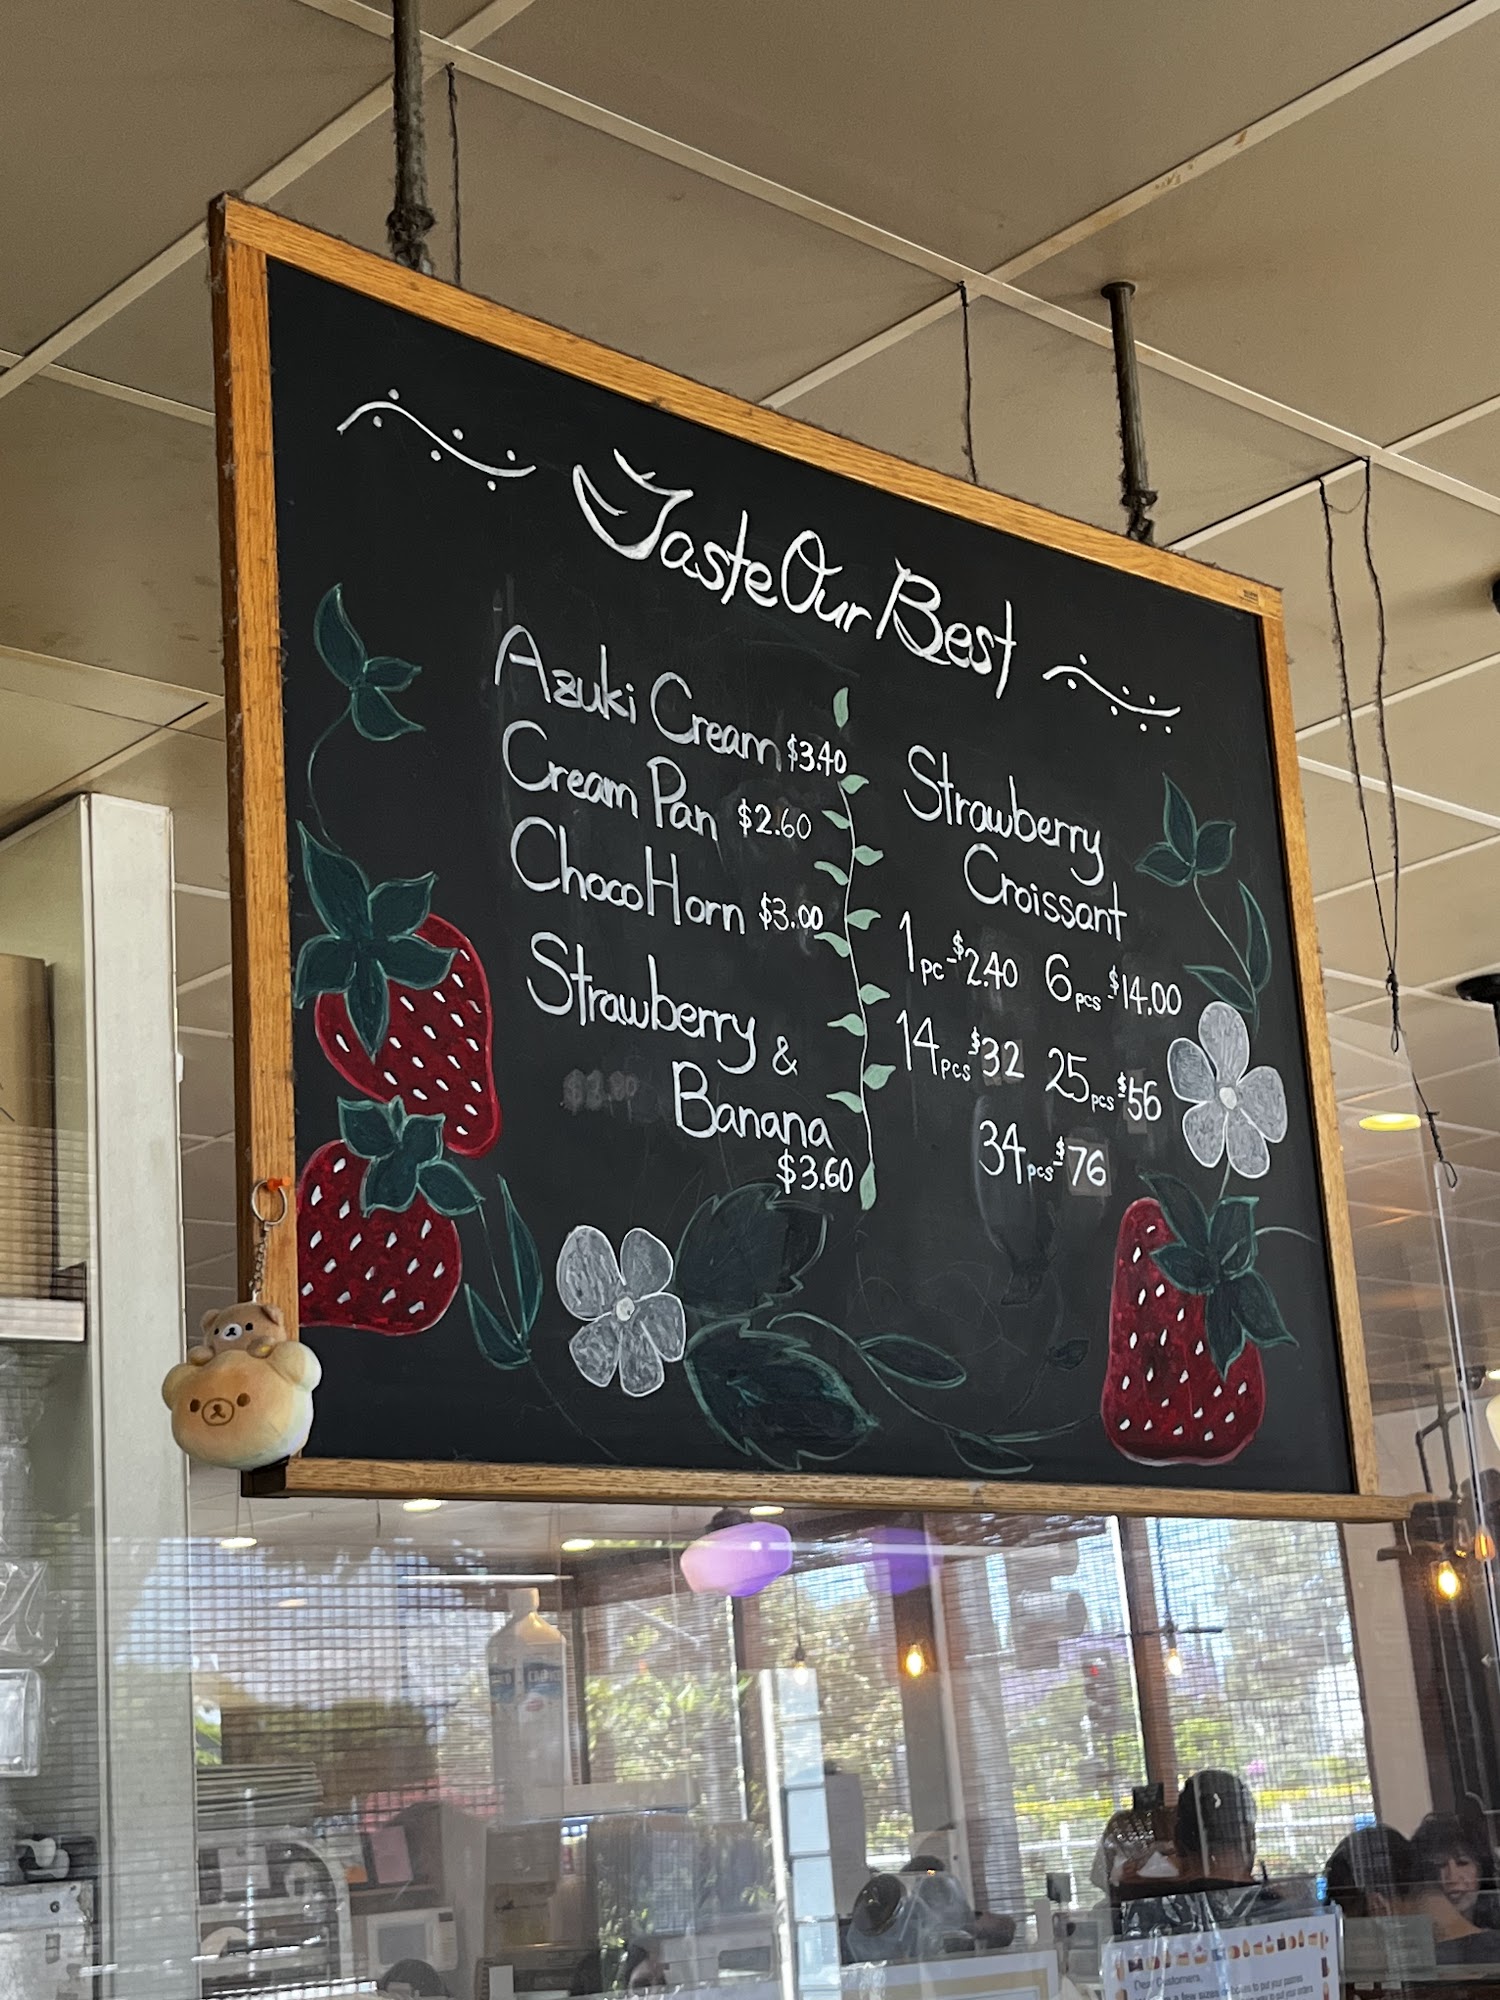 Taste Our Best
Azuki Cream $3.40
Cream Pan $2.60
Choco Horn $3.00
Strawberry &
Banana
$3.60
Strawberry
Croissant
1pc-$2.40 6pcs-$14.00
14pcs-$32 25pcs-$56
34pcs-$76
Dear Customers,